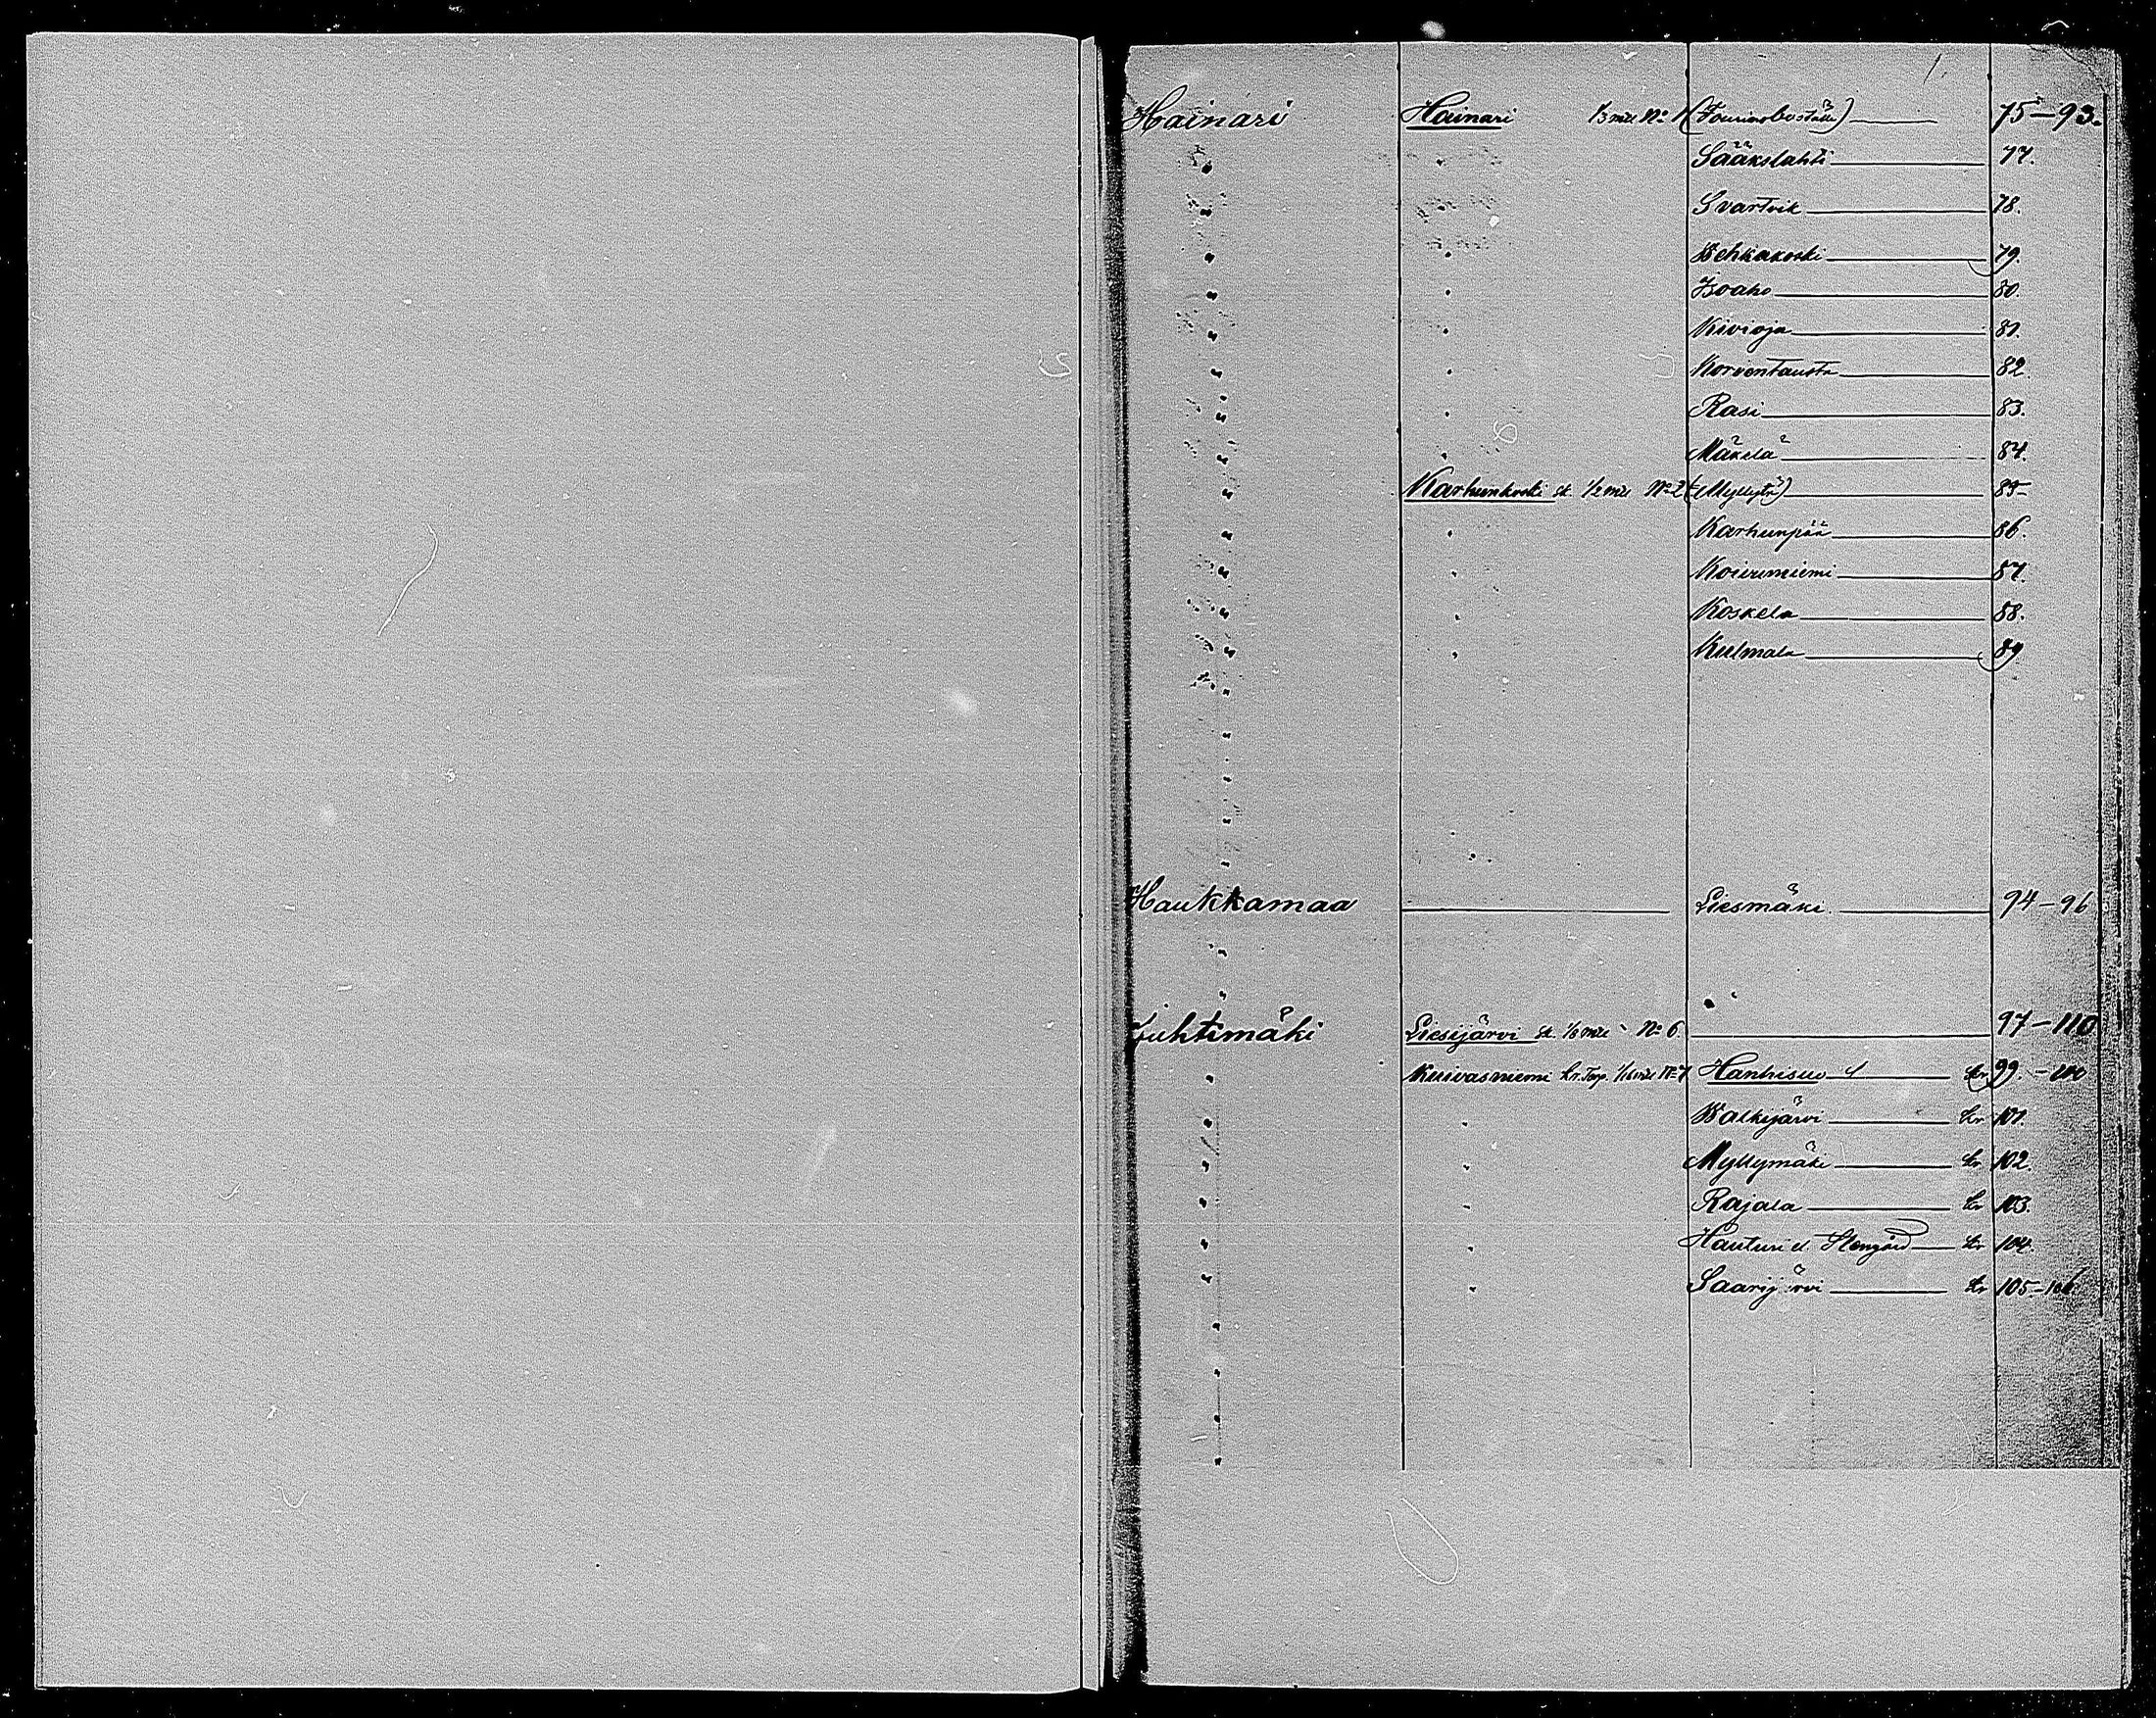 1.
Hainari Hainari 1/3 mtl No 1 (Fouriersboställe) 75–93.
" " Sääkslahti 77.
" " Svartvik 78.
" " Wehkakoski 79.
" " Isoaho 80.
" " Kivioja 81.
" " Korventausta 82.
" " Rasi 83.
" " Mäkelä 84.
" Karhunkoski sk. 1/2 mtl No 2 (Myllytu) 85
" " Karhunpää 86.
" " Koivuniemi 87.
" " Koskela 88.
" " Kulmala 89
"
"
"
"
"
Haukkamaa Liesmäki 94–96
"
"
Juhtimäki Liesijärvi sk. 1/3 mtl No 6. 97–110
" Kuivasniemi kr. Torp. 1/16 mtl No 7 Hanhisuo kr 99.–100
" " Walkijärvi kr 101.
" " Myllymäki kr 102.
" " Rajala kr 103.
" " Hauturi el. Stengård kr 104.
" " Saarijärvi kr 105–106
"
"
"
"